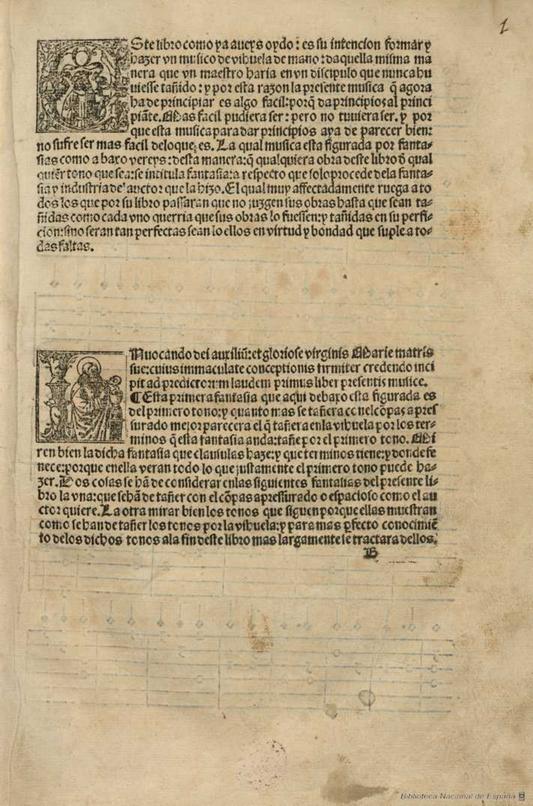 1
Este libro como ya aueys oydo: es su intencion formar y
hazer vn musico de vihuela de mano: daquella misma ma
nera que vn maestro haria en vn discipulo que nunca hu
uiesse tañido: y por esta razon la presente musica q̃ agora
ha de principiar es algo facil: porq̃ da principios al princi
piãte. Mas facil pudiera ser: pero no tuuiera ser. y por
que esta musica para dar principios aya de parecer bien:
no sufre ser mas facil de lo que es. La qual musica esta figurada por fanta-
sias como a baxo vereys: desta manera: q̃ qualquiera obra deste libro d̃ qual
quier tono que sea: se intitula fantasia: a respecto que solo procede dela fanta-
sia y industria del auctor que la hizo. El qual muy affectadamente ruega a to
dos los que por su libro passaran que no juzgen sus obras hasta que sean ta-
ñidas como cada vno querria que sus obras lo fuessen: y tañidas en su perfi-
cion: sino seran tan perfectas sean lo ellos en virtud y bondad que suple a to-
das faltas.
INuocando dei auxiliũ: et gloriose virginis Marie matris
sue: cuius immaculate conceptionis firmiter credendo inci
pit ad predictorum laudem primus liber presentis musice.
¶ Esta primera fantasia que aqui debaxo esta figurada es
del primero tono: y quanto mas se tañera cõ nel cõpas apres
surado mejor parecera el q̃ tañera en la vihuela por los ter-
minos q̃ esta fantasia anda: tañe por el primero tono. Mi
ren bien la dicha fantasia que clausulas haze: y que terminos tiene: y donde fe
nece: porque en ella veran todo lo que justamente el primero tono puede ha-
zer. Dos cosas se hã de considerar en las siguientes fantasias del presente li-
bro la vna: que se hã de tañer con el cõpas apressurado o espacioso como el au
ctor quiere. La otra mirar bien los tonos que siguen porque ellas muestran
como se han de tañer los tonos por la vihuela: y para mas perfecto conocimiẽ
to de los dichos tonos a la fin deste libro mas largamente se tractara dellos.
B
Biblioteca Nacional de España